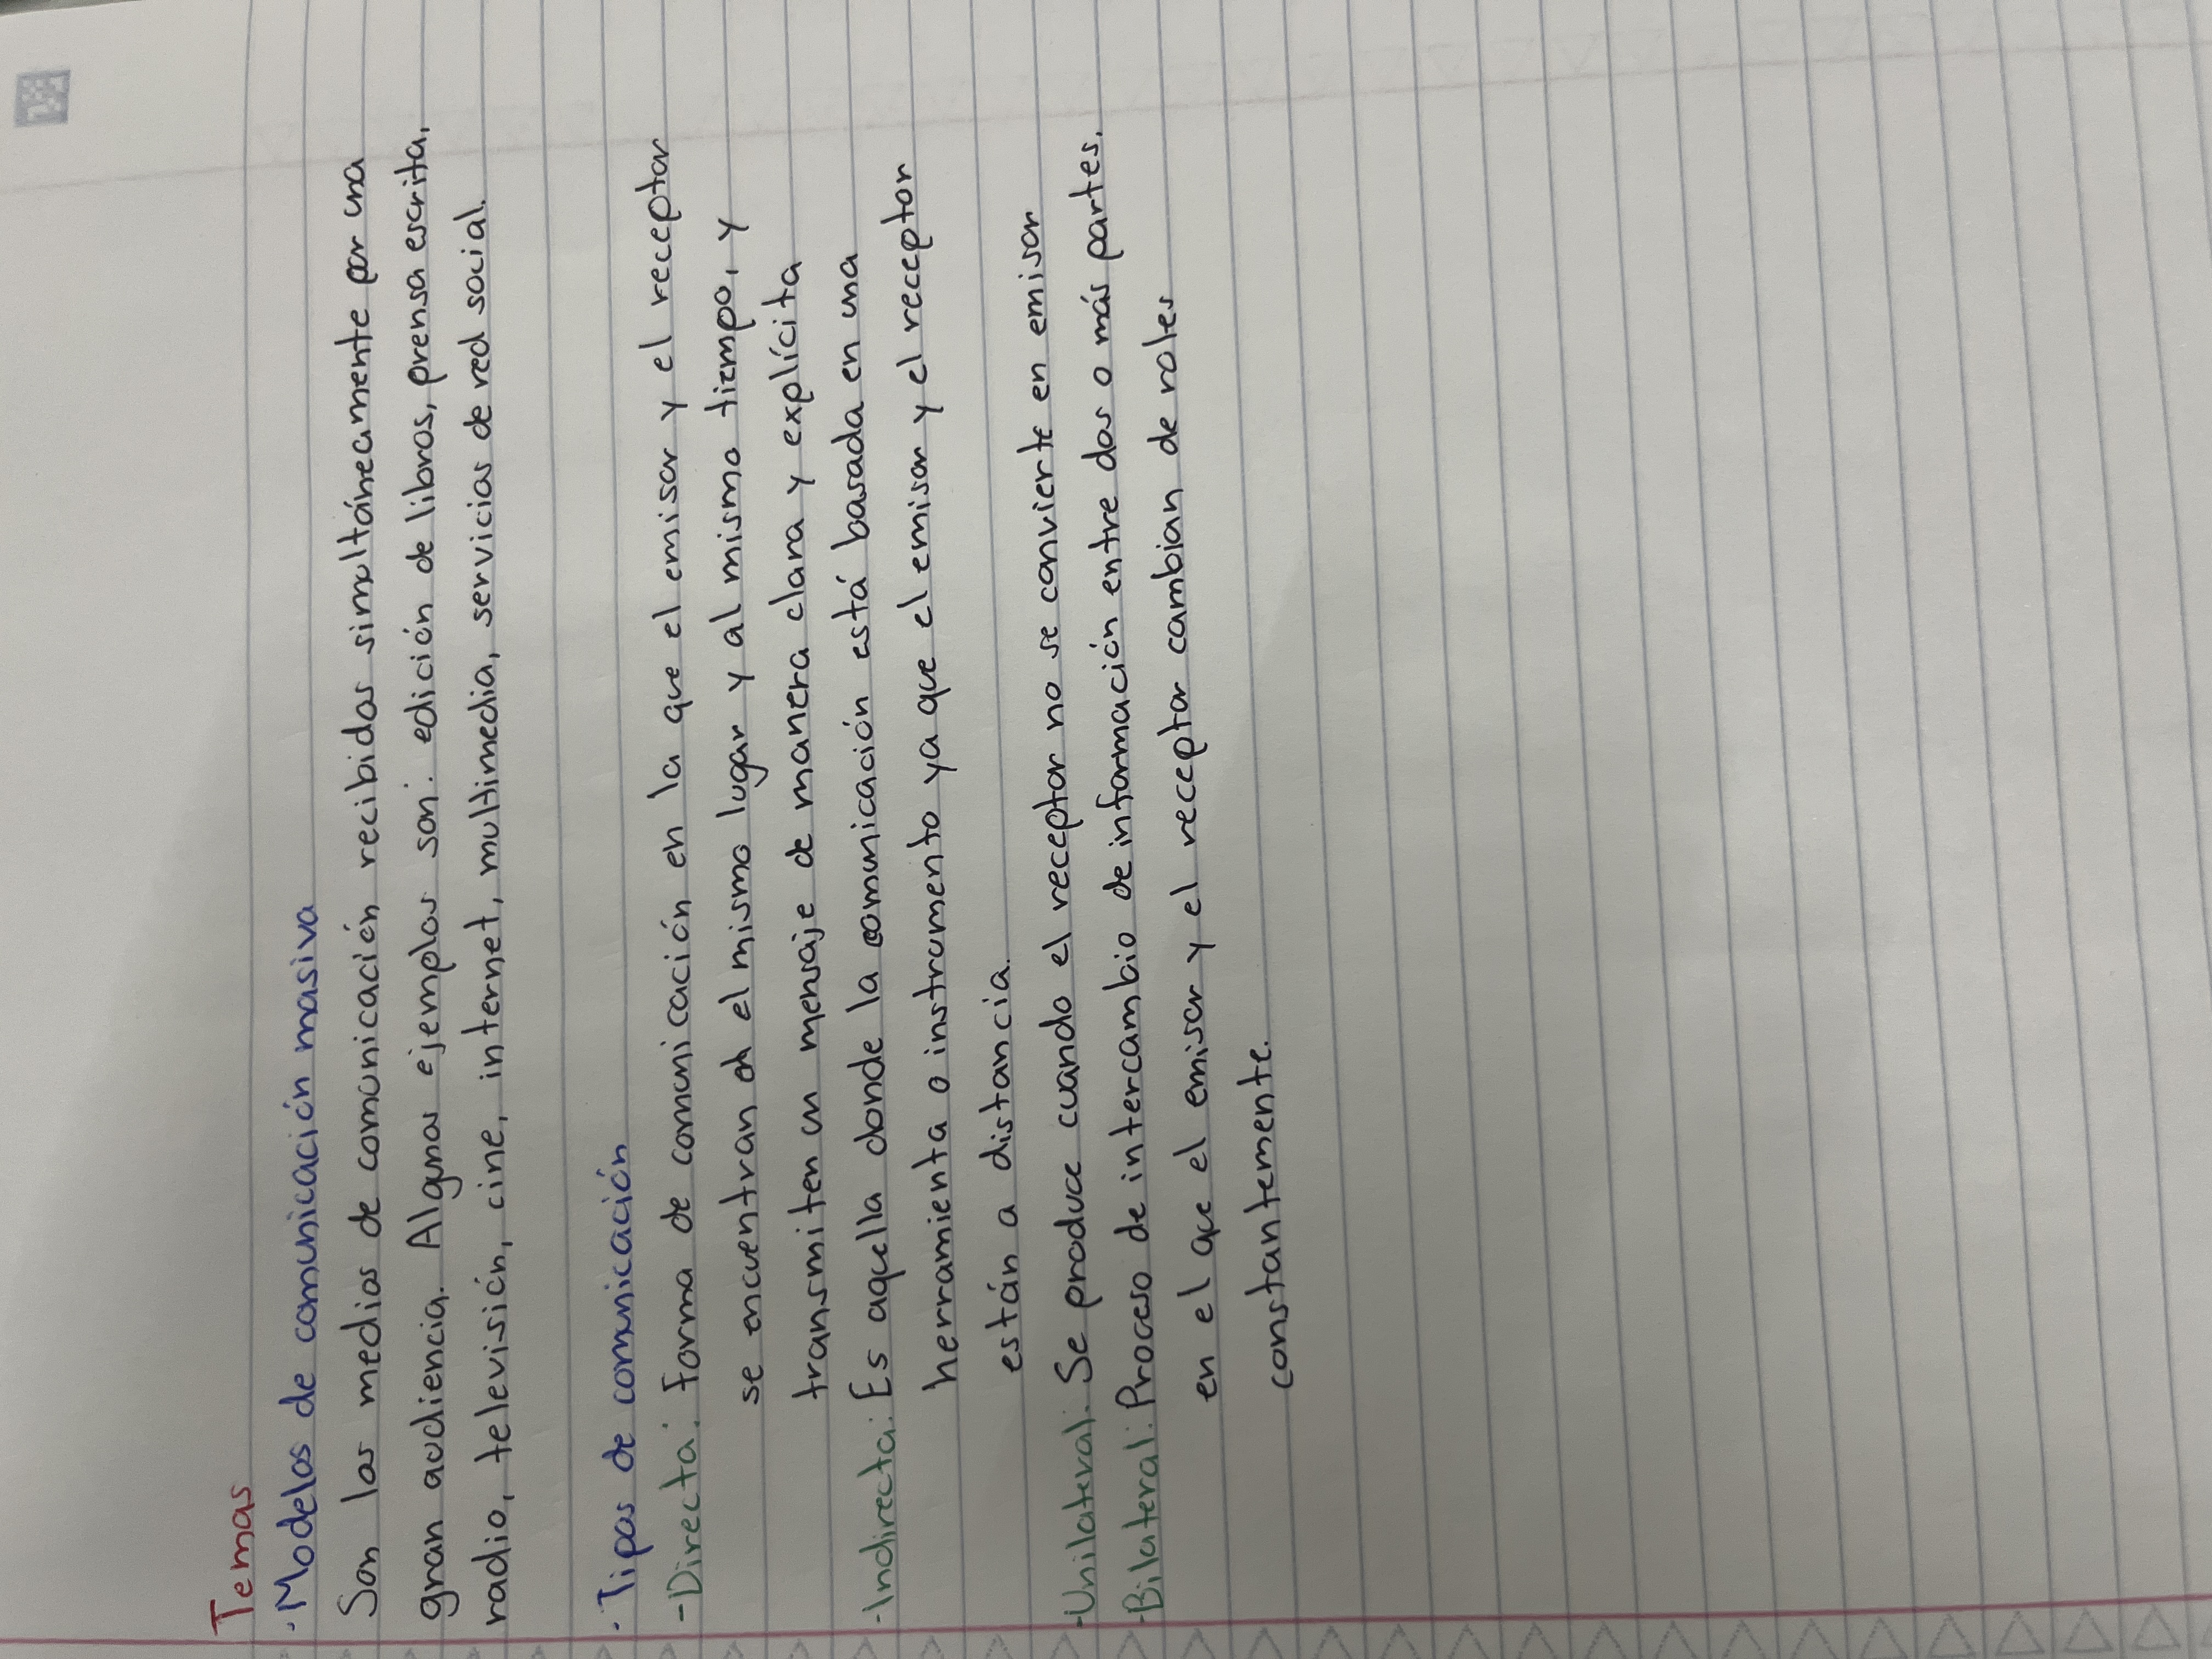 Temas
· Modelos de comunicación masiva
Son los medios de comunicación recibidos simultáneamente por una
gran audiencia. Algunos ejemplos son: edición de libros, prensa escrita,
radio, televisión, cine, internet, multimedia, servicios de red social.
· Tipos de comunicación
-Directa: Forma de comunicación en la que el emisor y el receptor
se encuentran en el mismo lugar y al mismo tiempo, y
transmiten un mensaje de manera clara y explícita
-Indirecta: Es aquella donde la comunicación está basada en una
herramienta o instrumento ya que el emisor y el receptor
están a distancia.
-Unilateral: Se produce cuando el receptor no se convierte en emisor
-Bilateral: Proceso de intercambio de información entre dos o más partes,
en el que el emisor y el receptor cambian de roles
constantemente.